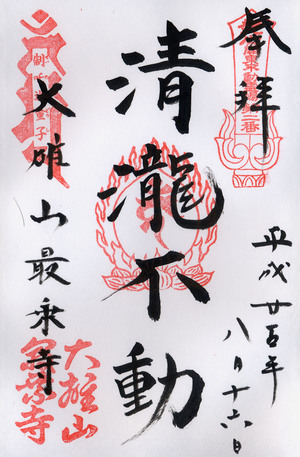 奉拝
第二番
清瀧不動
大雄山最乗寺
平成廿五年
八月十六日
大雄山
最乗寺